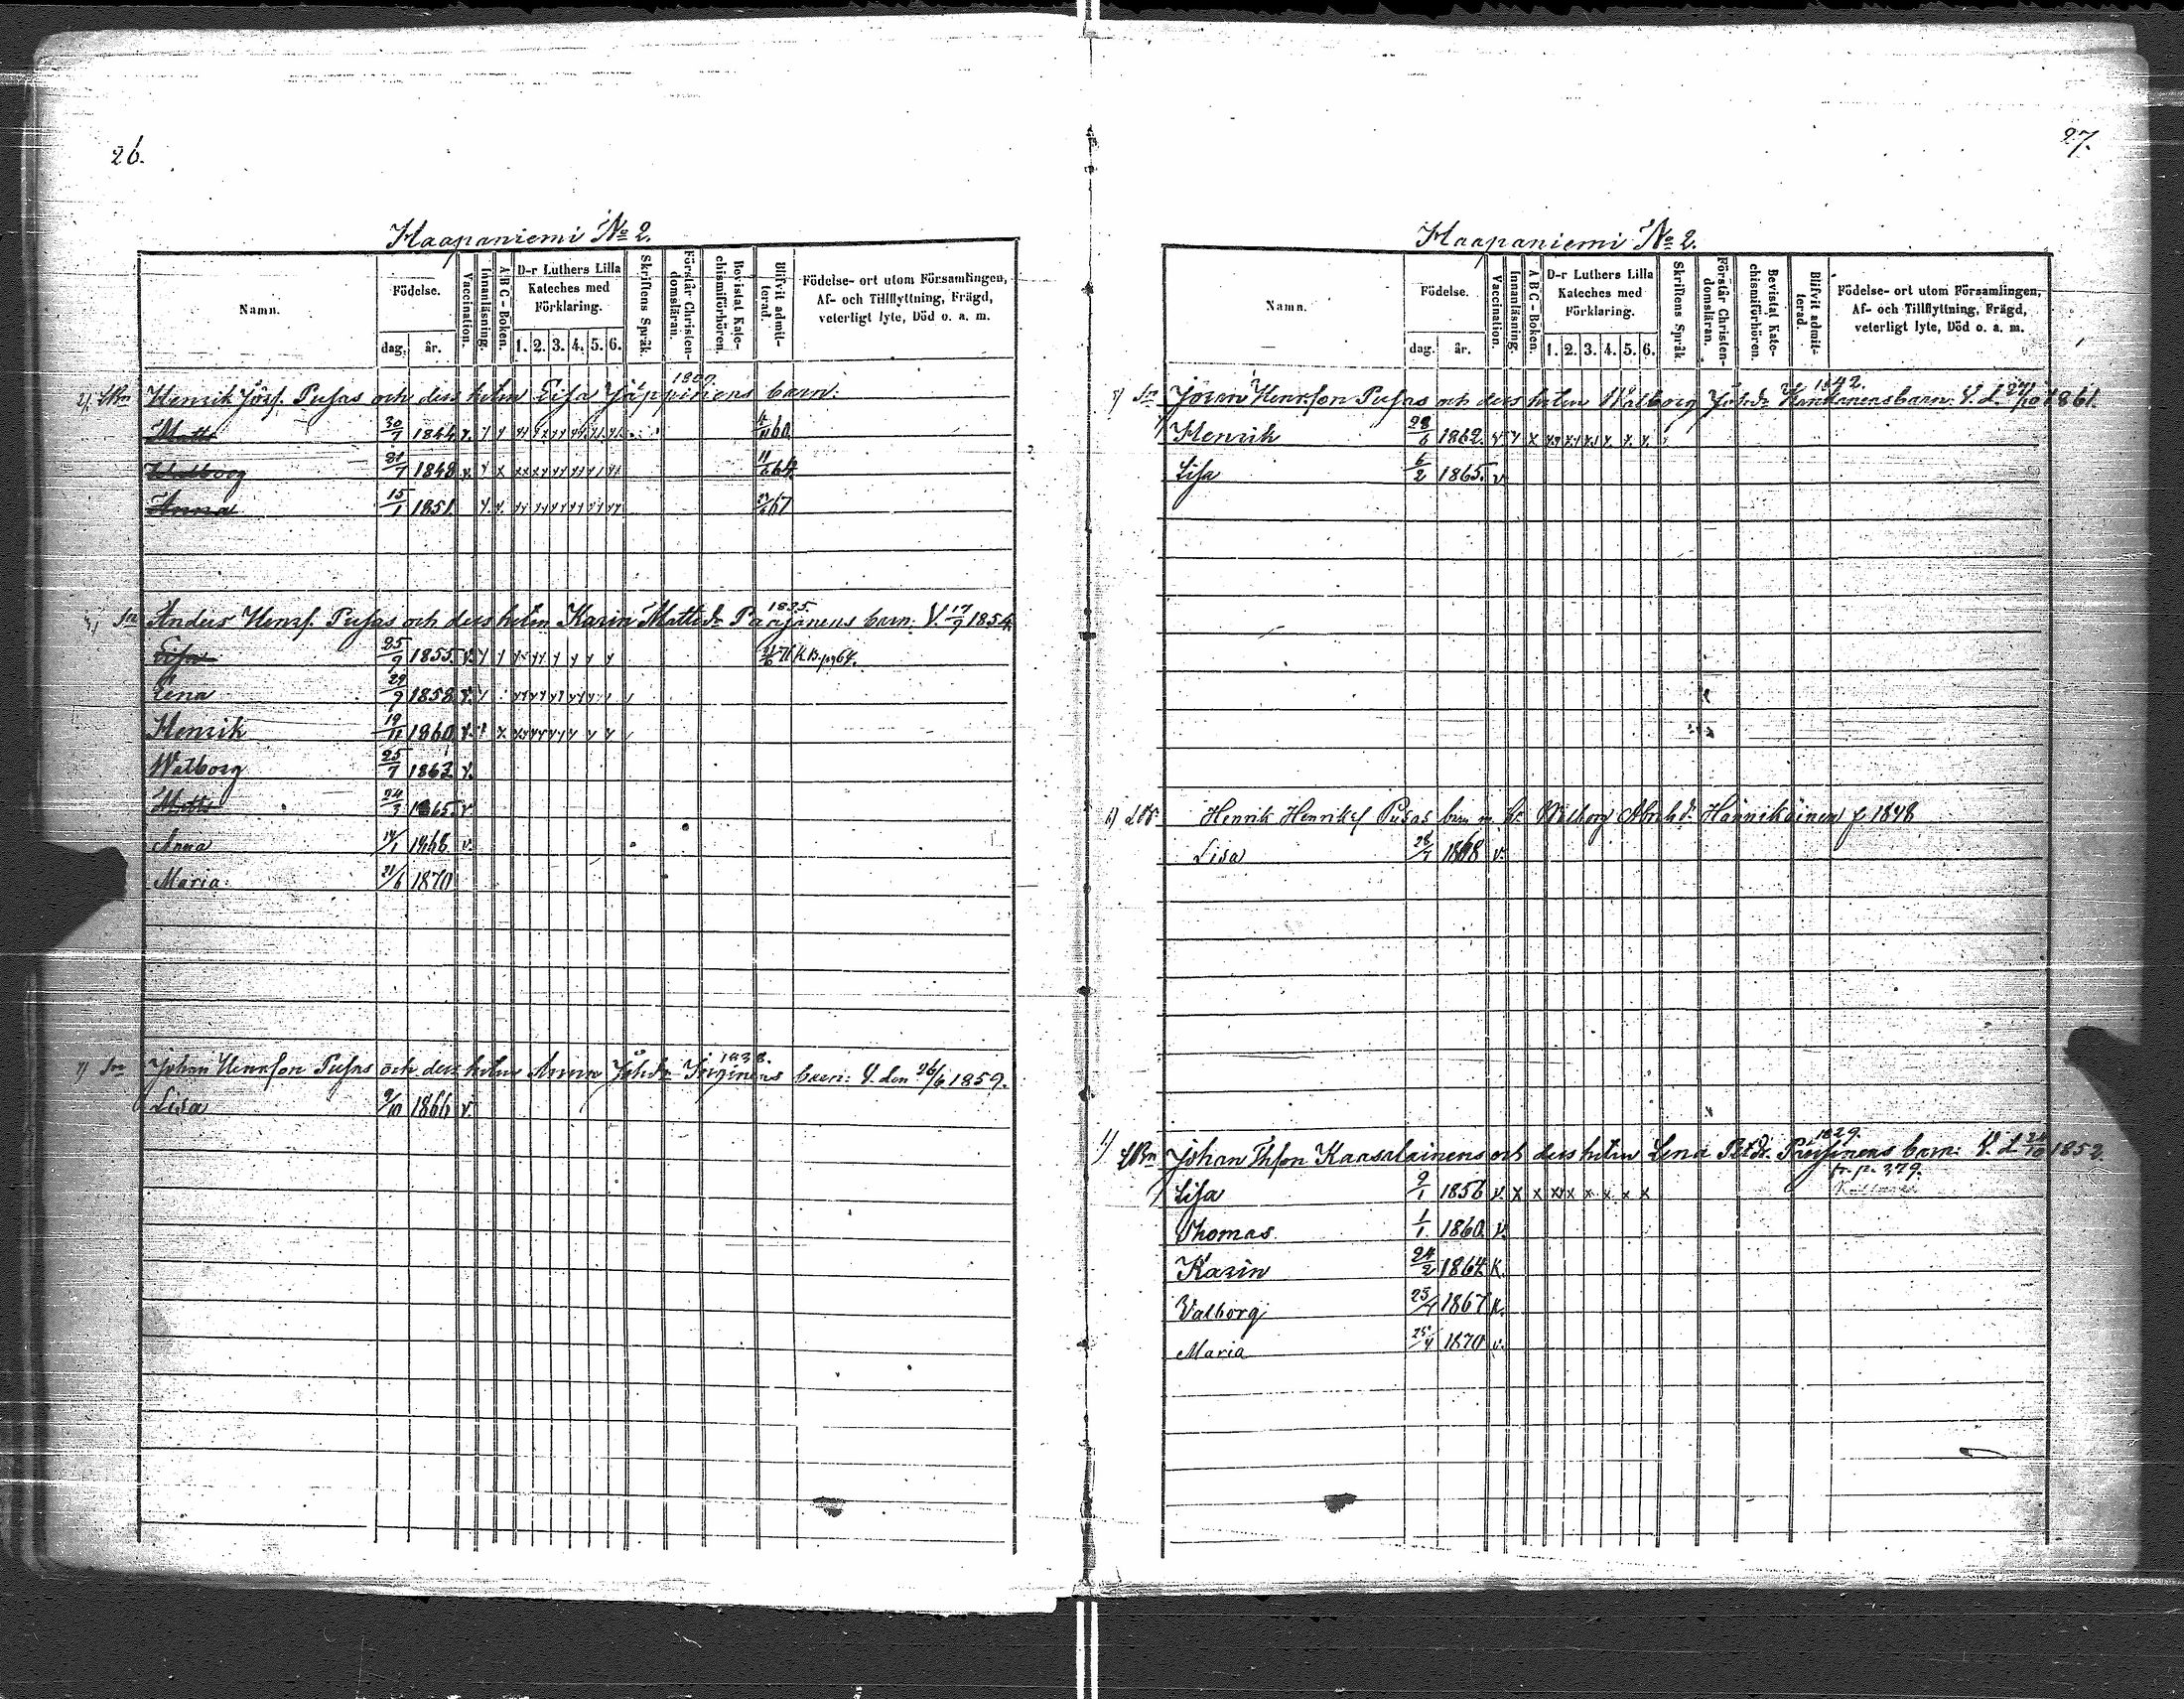 26.
Haapaniemi No 2.
Namn.
Födelse.
dag. år.
Vaccination.
Innanläsning.
ABC-Boken.
D-r Luthers Lilla Kateches med Förklaring.
1. 2. 3. 4. 5. 6.
Skriftens Språk.
Förstår Christendomsläran.
Bevistat Katechismiförhören.
Blifvit admitterad.
Födelse- ort utom Församlingen, Af- och Tillflyttning, Frägd, veterligt lyte, Död o. a. m.
1809
Henrik Jözf. Pusas och dess hustru Lisa Jäppinens barn.
Matts 30/7 1844 60
Walborg 21/7 1848 11/6 64
Anna 15/1 1851 67
1835.
Anders Henrs. Pusas och dess hustru Karin Mattsdr Paajanens barn. V. 17/9 1854
Lisa 25/9 1855 71 K.B. pag 64.
Lena 29/9 1858
Henrik 19/11 1860
Walborg 25/7 1862
Matts 24/3 1865
Anna 14/1 1868
Maria 21/6 1870
1838.
Johan Henrson Pusas och dess hustru Anna Johdr barn: V. den 26/6 1859.
Lisa 9/10 1866 v.
27.
Haapaniemi No 2.
Namn.
Födelse.
dag. år.
Vaccination.
Innanläsning.
ABC-Boken.
D-r Luthers Lilla Kateches med Förklaring.
1. 2. 3. 4. 5. 6.
Skriftens Språk.
Förstår Christendomsläran.
Bevistat Katechismiförhören.
Blifvit admitterad.
Födelse- ort utom Församlingen, Af- och Tillflyttning, Frägd, veterligt lyte, Död o. a. m.
1842.
Jöran Henrson Pusas och dess hustru Walborg Johdr barn. V. d. 27/10 1861.
Henrik 28/6 1862
Lisa 6/2 1865 v.
Henrik Henriks Pusas barn m. h. Walborg Abrahdr Hännikäinen f. 1848
Lisa 28/7 1868 v.
1829.
Johan Thson Kaasalainens och dess hustru Lena Petdr barn: V. d. 1852.
fr. p. 379.
Lisa 9/1 1856 v. x x xx x x x x
Thomas 1/1 1860 v.
Karin 24/2 1864
Valborg 25/4 1867
Maria 25/4 1870 v.